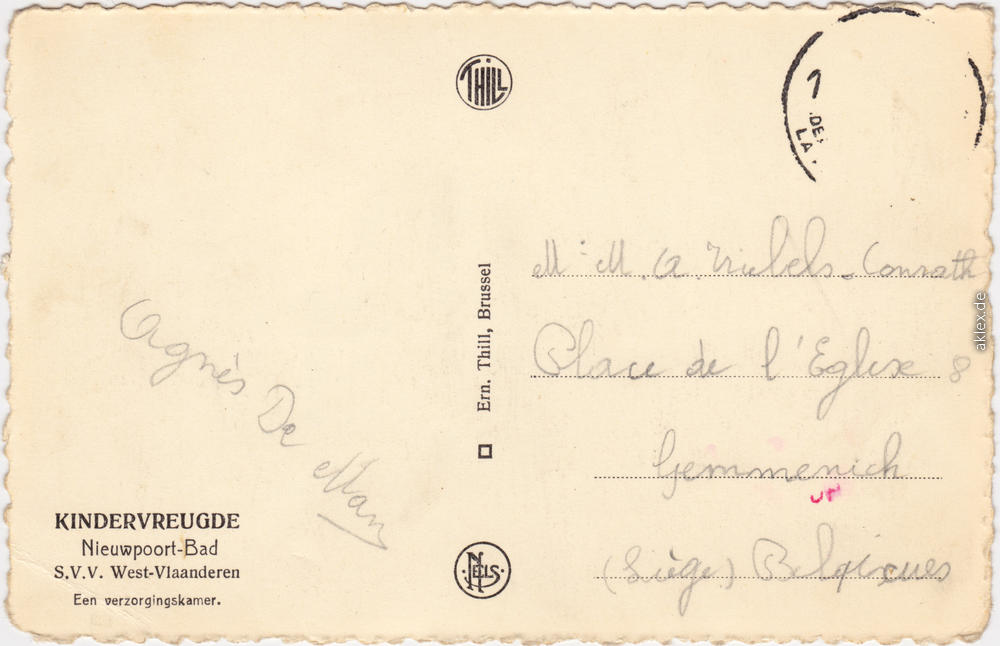 THILL
Agnès De Man
KINDERVREUGDE
Nieuwpoort-Bad
S.V.V. West-Vlaanderen
Een verzorgingskamer.
Ern. Thill, Brussel
NELS
DE
LA
M. M. A. -Conrath
Place de l'Eglise 8
Gemmenich
(Liège) Belgique
aklex.de